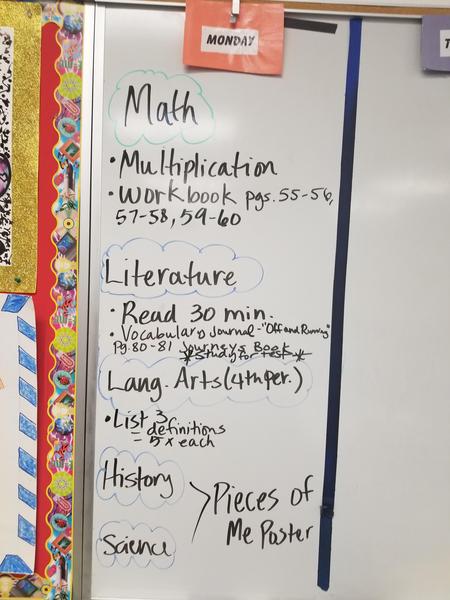 MONDAY
T
Math
• Multiplication
• Workbook pgs. 55-56,
57-58, 59-60
Literature
• Read 30 min.
• Vocabulary Journal - "Off and Running"
Pg. 80-81 Journeys Book
*Study for test*
Lang. Arts (4th per.)
• List 3
- definitions
- 5x each
History
Science
Pieces of
Me Poster